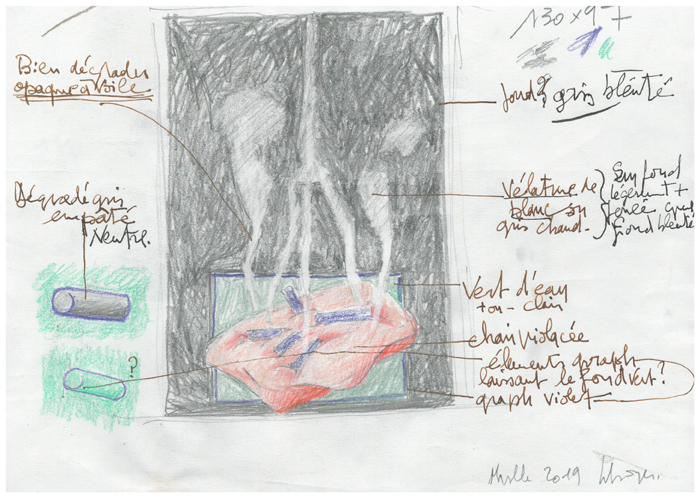 130 x 97
Bien dégrader
opaque à voile
fond? gris bleuté
Dégradé gris
empâté
Neutre.
Vélature de
blanc ou
gris chaud.
Sur fond
légèrement +
foncé que
fond bleuté
?
Vert d'eau
ton clair
chair violacée
éléments graph
laissant le fond vert?
graph violet
2019